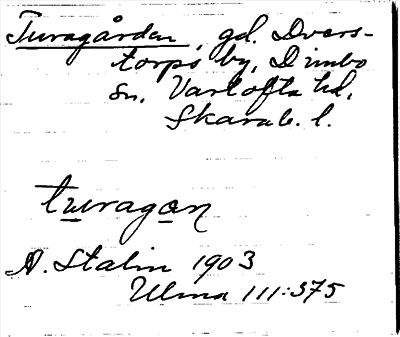 Turagården, gd. Dvers-
torps by, Dimbo
sn. Vartofta hd,
Skarab. l.
turagan
A. Stalin 1903
Ulma 111:375